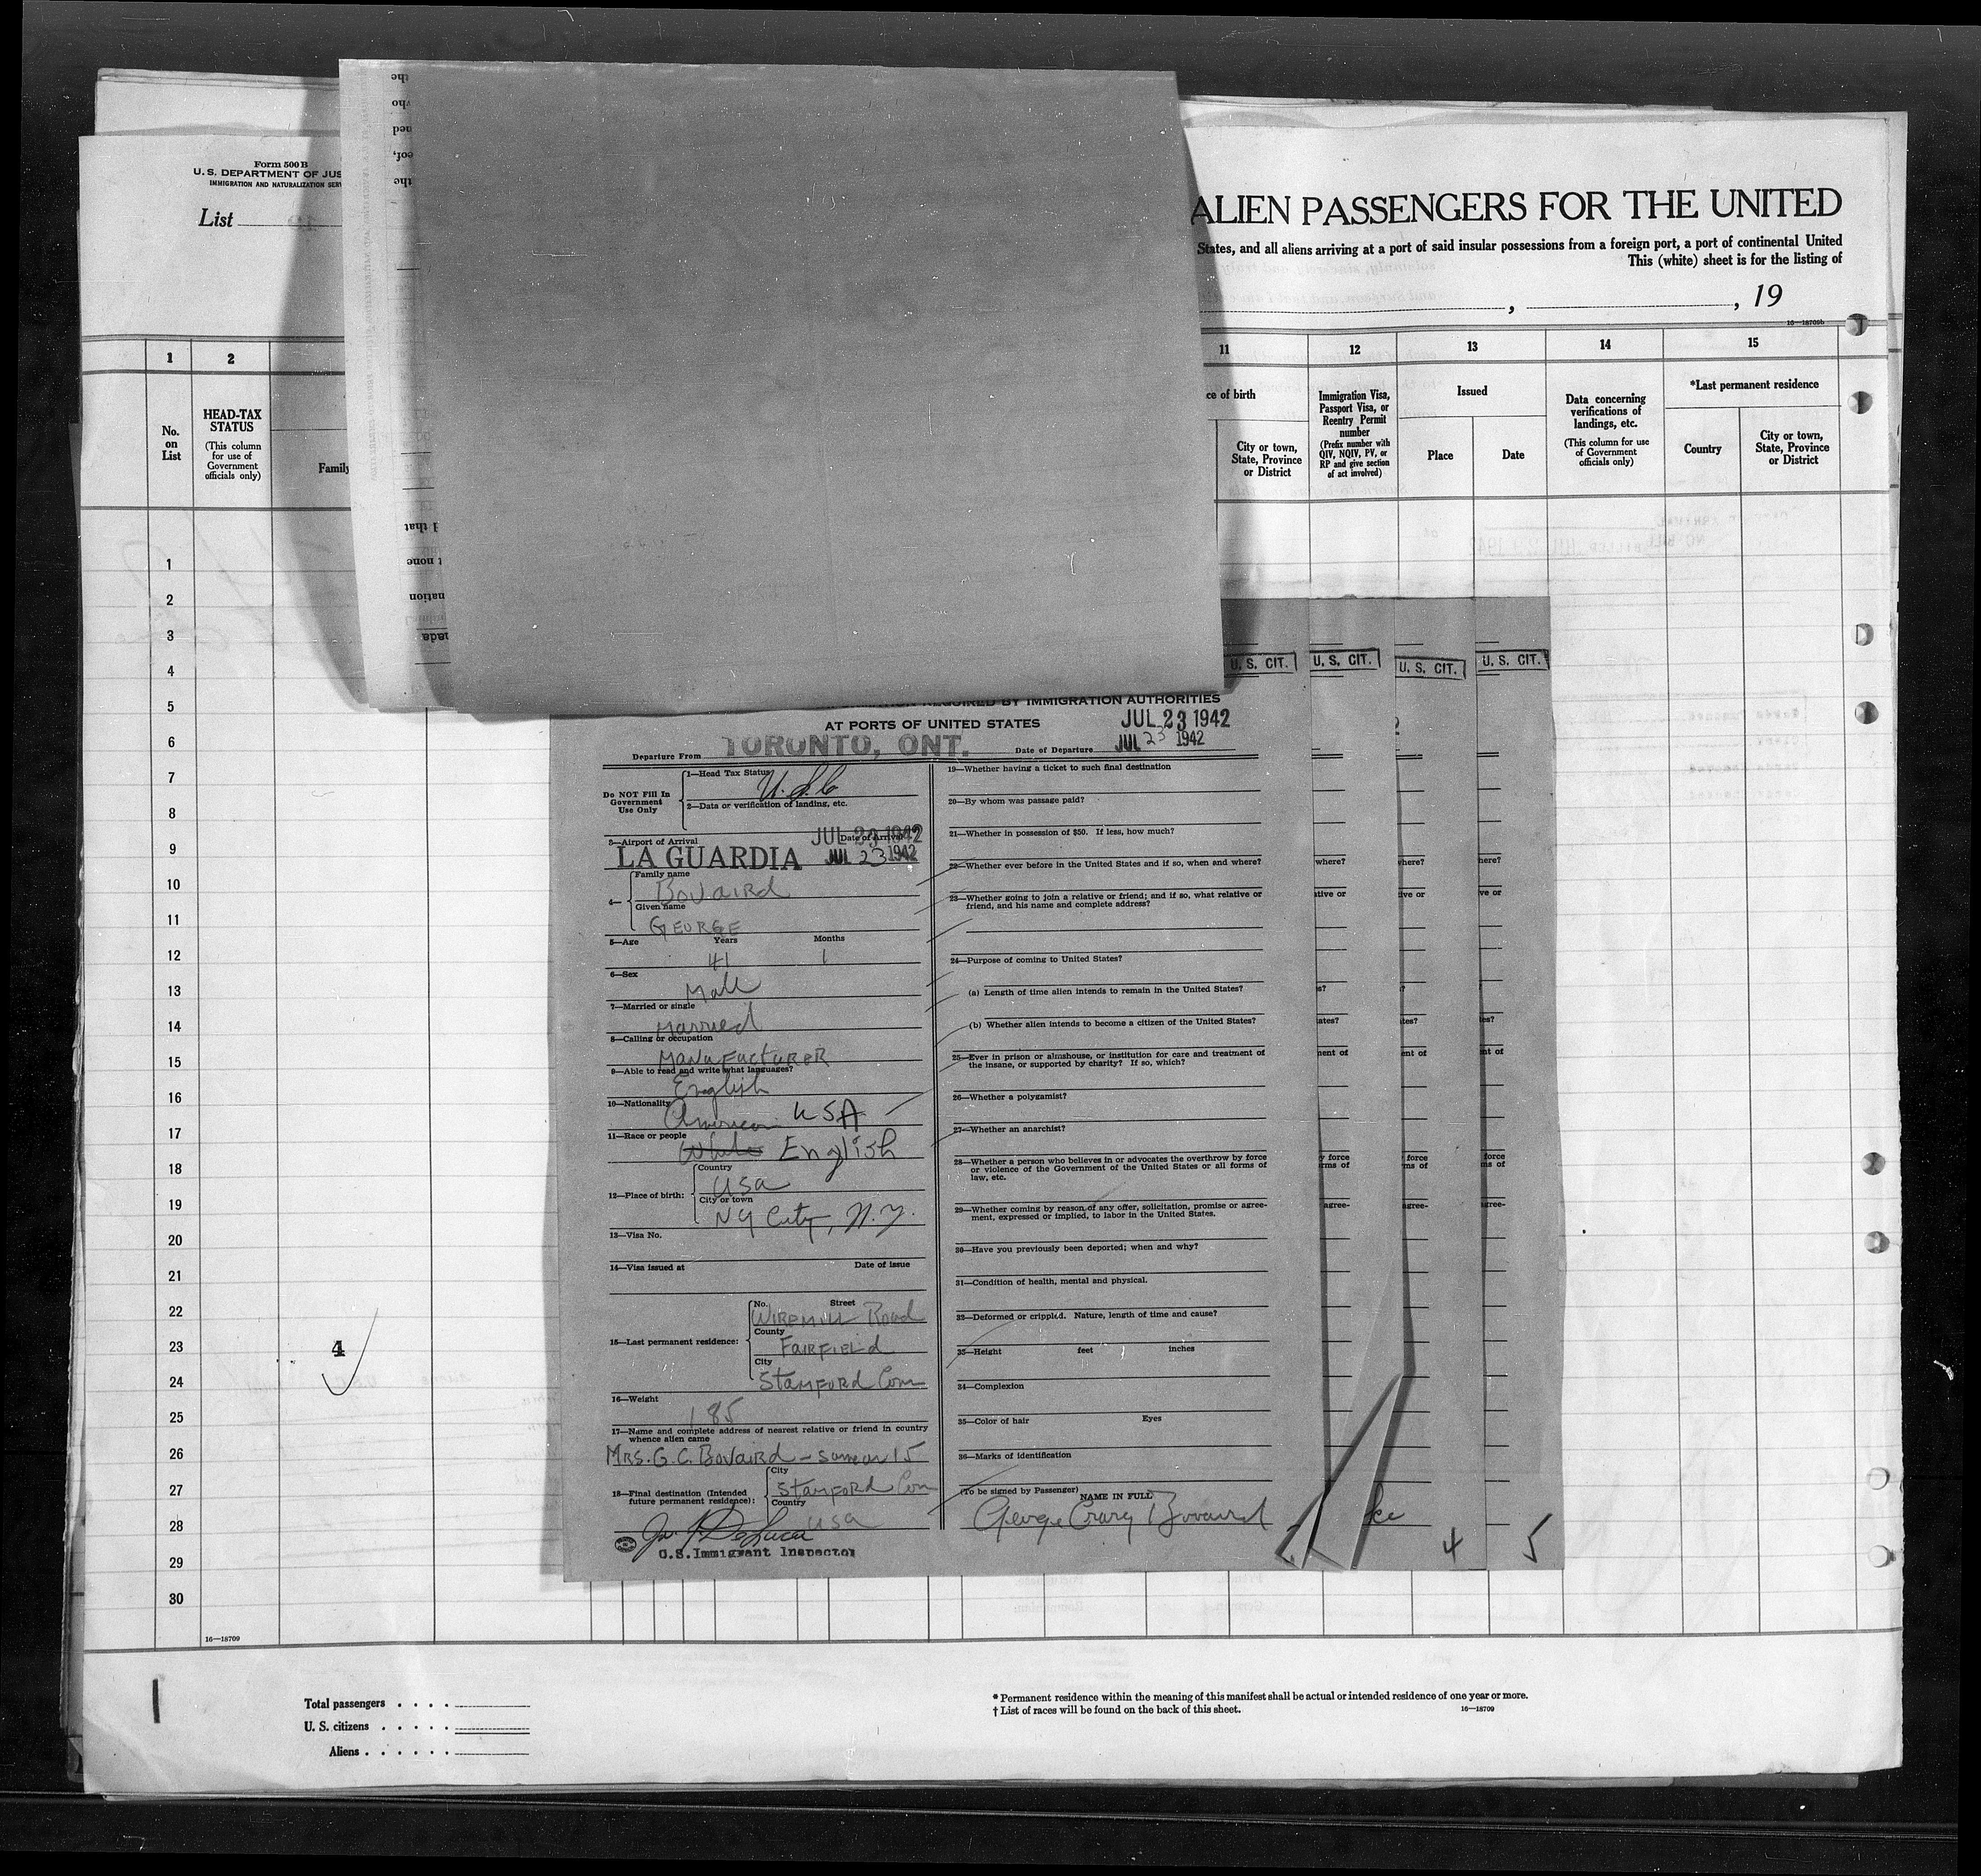 Form 500 B
U. S. DEPARTMENT OF JUS
IMMIGRATION AND NATURALIZATION SERV
List
ALIEN PASSENGERS FOR THE UNITED
States, and all aliens arriving at a port of said insular possessions from a foreign port, a port of continental United
This (white) sheet is for the listing of
, , 19
16—18709b
1 2 11 12 13 14 15
No. on List
HEAD-TAX STATUS
(This column for use of Government officials only)
Family
ce of birth
City or town, State, Province or District
Immigration Visa, Passport Visa, or Reentry Permit number
(Prefix number with QIV, NQIV, PV, or RP and give section of act involved)
Issued
Place
Date
Data concerning verifications of landings, etc.
(This column for use of Government officials only)
*Last permanent residence
Country
City or town, State, Province or District
1
2
3
4
5
6
7
8
9
10
11
12
13
14
15
16
17
18
19
20
21
22
23
24
25
26
27
28
29
30
4
U. S. CIT.
U. S. CIT.
U. S. CIT.
U. S. CIT.
REQUIRED BY IMMIGRATION AUTHORITIES
AT PORTS OF UNITED STATES
JUL 23 1942
Departure From TORONTO, ONT. Date of Departure JUL 23 1942
Do NOT Fill In Government Use Only
1—Head Tax Status
U.S.C
2—Data or verification of landing, etc.
3—Airport of Arrival
Date of Arrival
JUL 23 1942
LA GUARDIA JUL 23 1942
4—
Family name
Bovaird
Given name
GEORGE
5—Age Years Months
41 1
6—Sex
Male
7—Married or single
Married
8—Calling or occupation
Manufacturer
9—Able to read and write what languages?
English
10—Nationality
American USA
11—Race or people
White English
12—Place of birth:
Country
USA
City or town
NY City, N.Y.
13—Visa No.
14—Visa issued at Date of issue
15—Last permanent residence:
No. Street
Wiremill Road
County
Fairfield
City
Stamford Conn
16—Weight
185
17—Name and complete address of nearest relative or friend in country
whence alien came
Mrs. G. C. Bovaird – same as 15
18—Final destination (Intended
future permanent residence):
City
Stamford Conn
Country
USA
U.S. Immigrant Inspector
19—Whether having a ticket to such final destination
20—By whom was passage paid?
21—Whether in possession of $50. If less, how much?
22—Whether ever before in the United States and if so, when and where?
23—Whether going to join a relative or friend; and if so, what relative or
friend, and his name and complete address?
24—Purpose of coming to United States?
(a) Length of time alien intends to remain in the United States?
(b) Whether alien intends to become a citizen of the United States?
25—Ever in prison or almshouse, or institution for care and treatment of
the insane, or supported by charity? If so, which?
26—Whether a polygamist?
27—Whether an anarchist?
28—Whether a person who believes in or advocates the overthrow by force
or violence of the Government of the United States or all forms of
law, etc.
29—Whether coming by reason of any offer, solicitation, promise or agree-
ment, expressed or implied, to labor in the United States.
30—Have you previously been deported; when and why?
31—Condition of health, mental and physical.
32—Deformed or crippled. Nature, length of time and cause?
33—Height feet inches
34—Complexion
35—Color of hair Eyes
36—Marks of identification
(To be signed by Passenger) NAME IN FULL
George Crary Bovaird
ke
4
5
16—18709
Total passengers . . . .
U. S. citizens . . . . .
Aliens . . . . . .
* Permanent residence within the meaning of this manifest shall be actual or intended residence of one year or more.
† List of races will be found on the back of this sheet.
16—18709